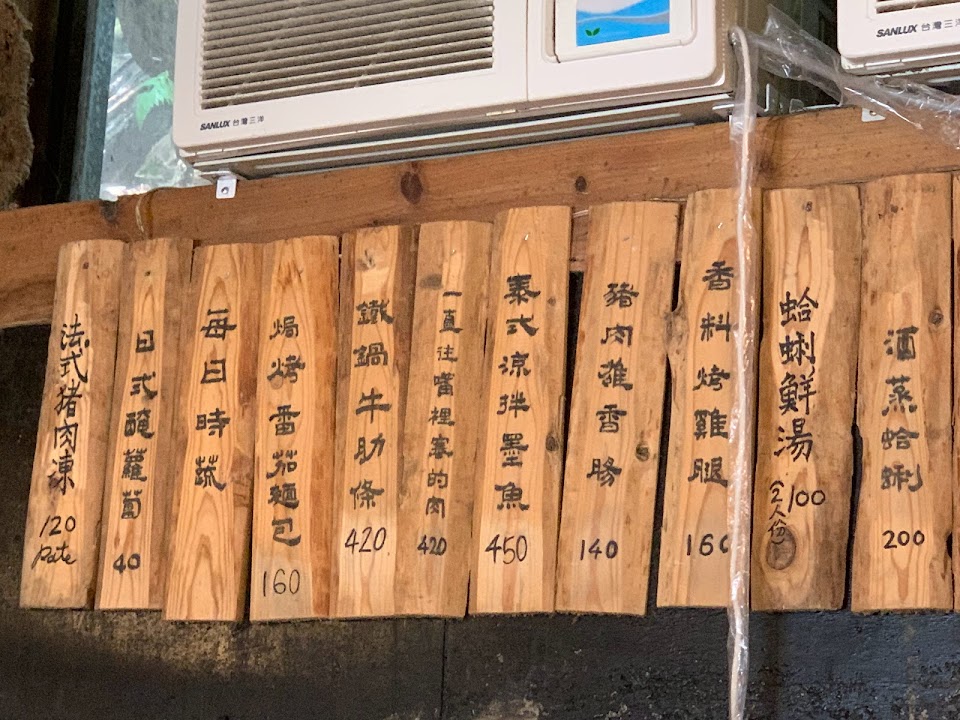 SANLUX 台灣三洋
SANLUX 台灣三洋
法式猪肉凍
120
Pate
日式醃蘿蔔
40
每日時蔬
焗烤番茄麵包
160
鐵鍋牛肋條
420
一直往嘴裡塞的肉
420
泰式涼拌墨魚
450
豬肉雅香腸
140
香料烤雞腿
160
蛤蜊鮮湯
(2人份)
100
酒蒸蛤蜊
200